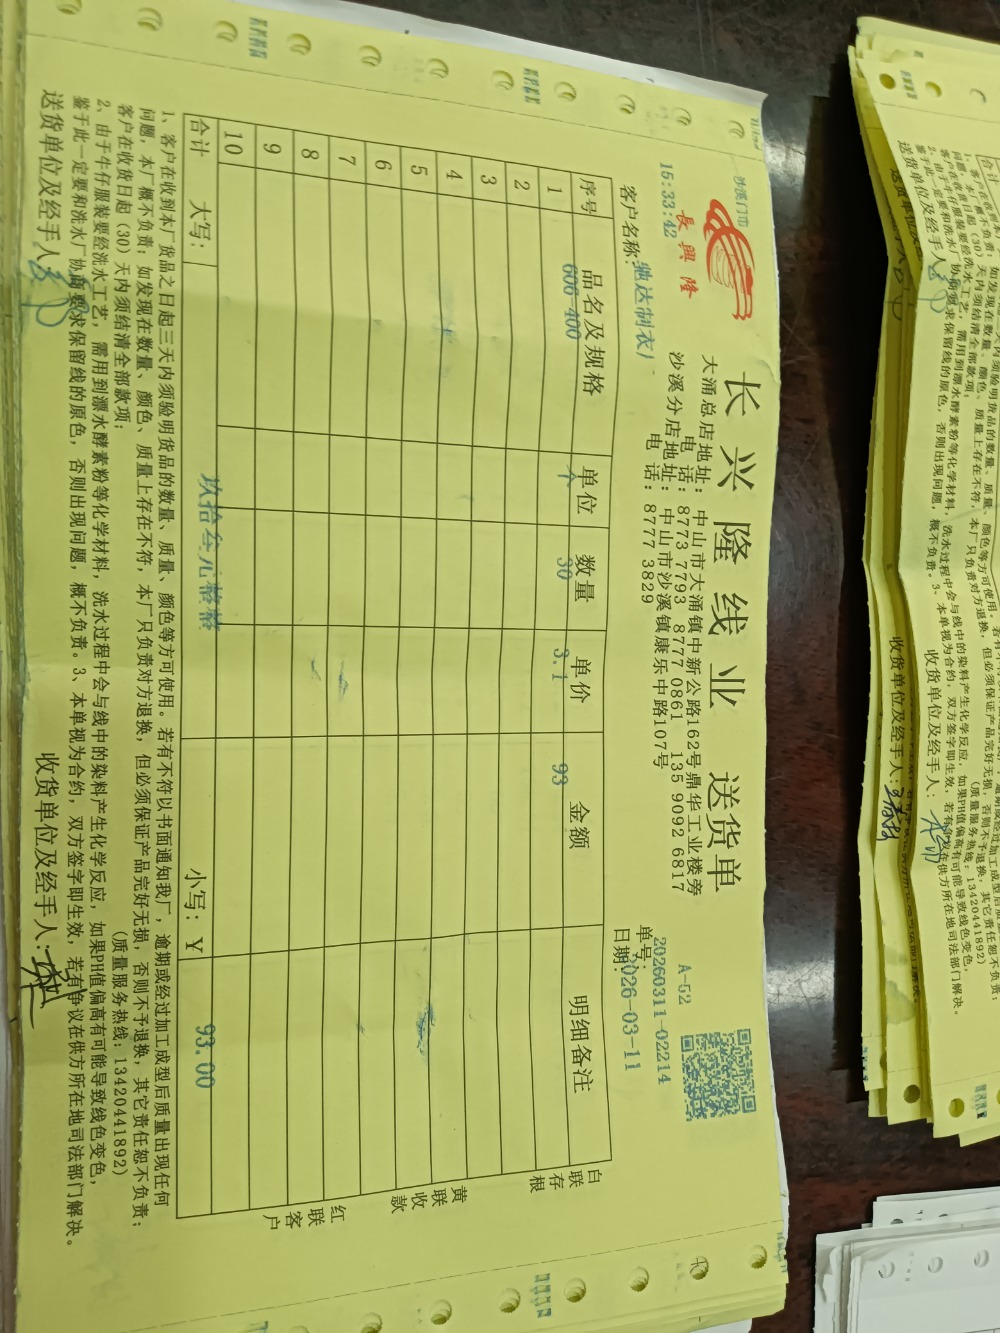 沙溪门市
長興隆
长兴隆线业 送货单
大涌总店地址：中山市大涌镇中新公路162号鼎华工业楼旁
电 话：8773 7793 8777 0861 135 9092 6817
沙溪分店地址：中山市沙溪镇康乐中路107号
电 话：8777 3829
A-52
15:33:42
单号：20260311-02214
客户名称：驰达制衣厂
日期：2026-03-11
序号 品名及规格 单位 数量 单价 金额 明细备注
1 606-400 个 30 3.1 93
2
3
4
5
6
7
8
9
10
合计 大写： 玖拾叁元 小写：￥ 93.00
白联存根
黄联收款
红联客户
1、客户在收到本厂货品之日起三天内须验明货品的数量、质量、颜色等方可使用。若有不符以书面通知我厂，逾期或经过加工成型后质量出现任何
问题，本厂概不负责；如发现在数量、颜色、质量上存在不符，本厂只负责对方退换，但必须保证产品完好无损，否则不予退换，其它责任恕不负责；
客户在收货日起（30）天内须结清全部款项； （质量服务热线：13420441892）
2、由于牛仔服装要经洗水工艺，需用到漂水酵素粉等化学材料，洗水过程中会与线中的染料产生化学反应，如果PH值偏高有可能导致线色变色，
鉴于此一定要和洗水厂协商要求保留线的原色，否则出现问题，概不负责。3、本单视为合约，双方签字即生效，若有争议在供方所在地司法部门解决。
送货单位及经手人：
收货单位及经手人：
合计
（质量服务热线：13420441892）
送货单位及经手人：
收货单位及经手人：
收货单位及经手人：